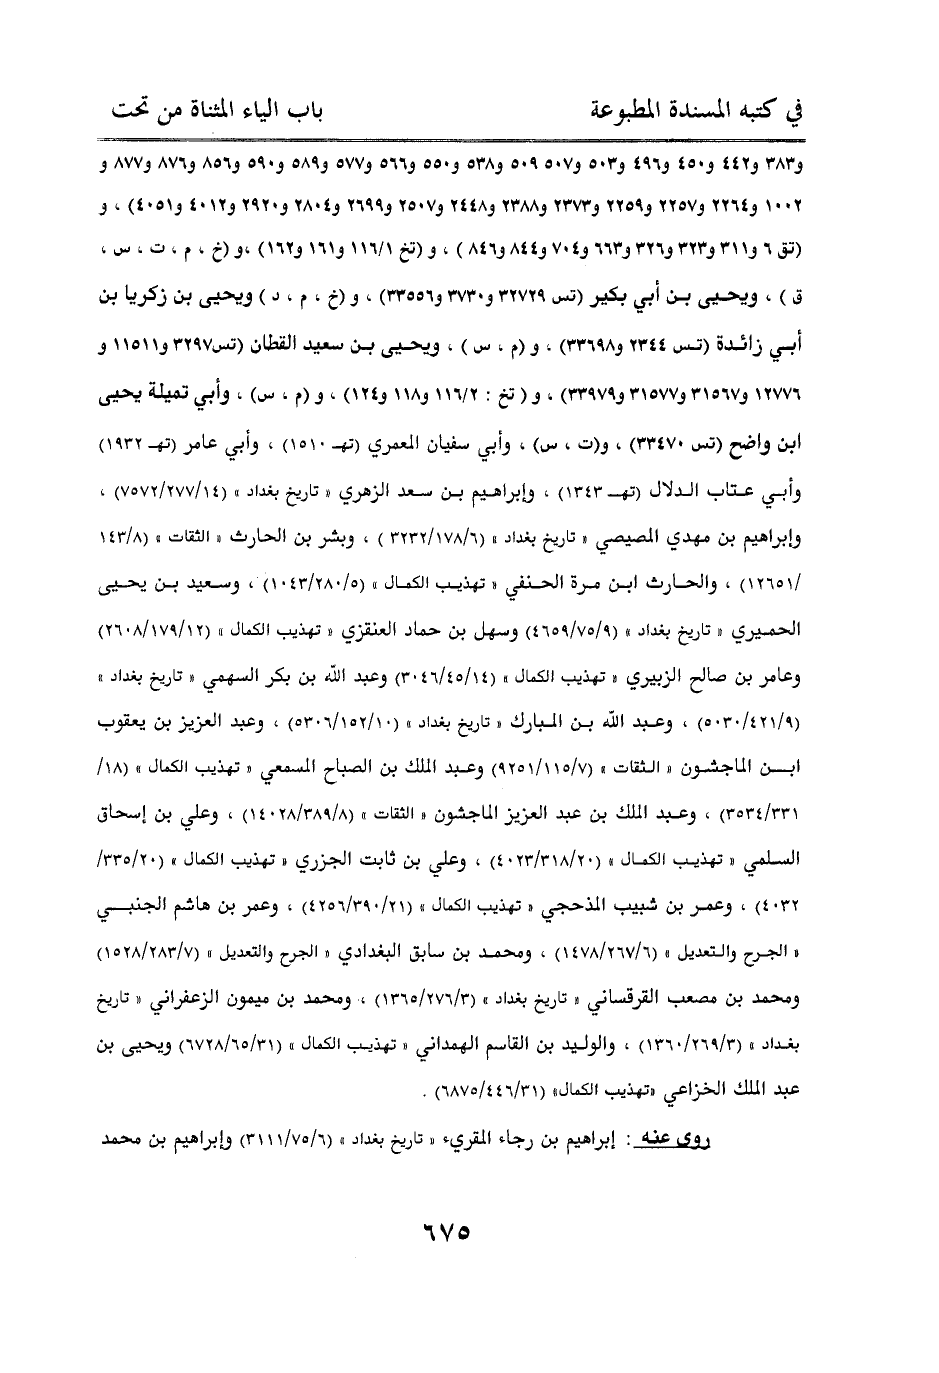 في كتبه المسندة المطبوعة باب الياء المثناة من تحت
و٣٨٣ و٤٤٢ و٤٥٠ و٤٩٦ و٥٠٣ و٥٠٧ ٥٠٩ و٥٣٨ و٥٥٠ و٥٦٦ و٥٧٧ و٥٨٩ و٥٩٠ و٨٥٦ و٨٧٦ و٨٧٧ و
١٠٠٢ و٢٢٦٤ و٢٢٥٧ و٢٢٥٩ و٢٣٧٣ و٢٣٨٨ و٢٤٤٨ و٢٥٠٧ و٢٦٩٩ و٢٨٠٤ و٢٩٢٠ و٤٠١٢ و٤٠٥١) ، و
(تق ٦ و٣١١ و٣٢٣ و٣٢٦ و٦٦٣ و٧٠٤ و٨٤٤ و٨٤٦ ) ، و (تخ ١١٦/١ و١٦١ و١٦٢) ،و (خ ، م ، ت ، س ،
ق ) ، ويحيى بن أبي بكير (تس ٣٢٧٢٩ و٣٧٣٠ و٣٣٥٥٦) ، و (خ ، م ، د ) ويحيى بن زكريا بن
أبي زائدة (تس ٢٣٤٤ و٣٣٦٩٨) ، و (م ، س ) ، ويحيى بن سعيد القطان (تس٣٢٩٧ و١١٥١١ و
١٢٧٧٦ و٣١٥٦٧ و٣١٥٧٧ و٣٣٩٧٩) ، و ( تخ : ١١٦/٢ و١١٨ و١٢٤) ، و (م ، س) ، وأبي تميلة يحيى
ابن واضح (تس ٣٣٤٧٠) ، و(ت ، س) ، وأبي سفيان المعمري (تهـ ١٥١٠) ، وأبي عامر (تهـ ١٩٣٢)
وأبي عتاب الدلال (تهـ ١٣٤٣) ، وإبراهيم بن سعد الزهري « تاريخ بغداد » (٧٥٧٢/٢٧٧/١٤) ،
وإبراهيم بن مهدي المصيصي « تاريخ بغداد » (٣٢٣٢/١٧٨/٦ ) ، وبشر بن الحارث « الثقات » (١٤٣/٨
/١٢٦٥١) ، والحارث ابن مرة الحنفي « تهذيب الكمال » (١٠٤٣/٢٨٠/٥) ، وسعيد بن يحيى
الحميري « تاريخ بغداد » (٤٦٥٩/٧٥/٩) وسهل بن حماد العنقزي « تهذيب الكمال » (٢٦٠٨/١٧٩/١٢)
وعامر بن صالح الزبيري « تهذيب الكمال » (٣٠٤٦/٤٥/١٤) وعبد الله بن بكر السهمي « تاريخ بغداد »
(٥٠٣٠/٤٢١/٩) ، وعبد الله بن المبارك « تاريخ بغداد » (٥٣٠٦/١٥٢/١٠) ، وعبد العزيز بن يعقوب
ابن الماجشون « الثقات » (٩٢٥١/١١٥/٧) وعبد الملك بن الصباح المسمعي « تهذيب الكمال » (١٨/
٣٥٣٤/٣٣١) ، وعبد الملك بن عبد العزيز الماجشون « الثقات » (١٤٠٢٨/٣٨٩/٨) ، وعلي بن إسحاق
السلمي « تهذيب الكمال » (٤٠٢٣/٣١٨/٢٠) ، وعلي بن ثابت الجزري « تهذيب الكمال » (٣٣٥/٢٠/
٤٠٣٢) ، وعمر بن شبيب المذحجي « تهذيب الكمال » (٤٢٥٦/٣٩٠/٢١) ، وعمر بن هاشم الجنبي
« الجرح والتعديل » (١٤٧٨/٢٦٧/٦) ، ومحمد بن سابق البغدادي « الجرح والتعديل » (١٥٢٨/٢٨٣/٧)
ومحمد بن مصعب القرقساني « تاريخ بغداد » (١٣٦٥/٢٧٦/٣) ، ومحمد بن ميمون الزعفراني « تاريخ
بغداد » (١٣٦٠/٢٦٩/٣) ، والوليد بن القاسم الهمداني « تهذيب الكمال » (٦٧٢٨/٦٥/٣١) ويحيى بن
عبد الملك الخزاعي «تهذيب الكمال» (٦٨٧٥/٤٤٦/٣١) .
روى عنه : إبراهيم بن رجاء المقريء « تاريخ بغداد » (٣١١١/٧٥/٦) وإبراهيم بن محمد
٦٧٥